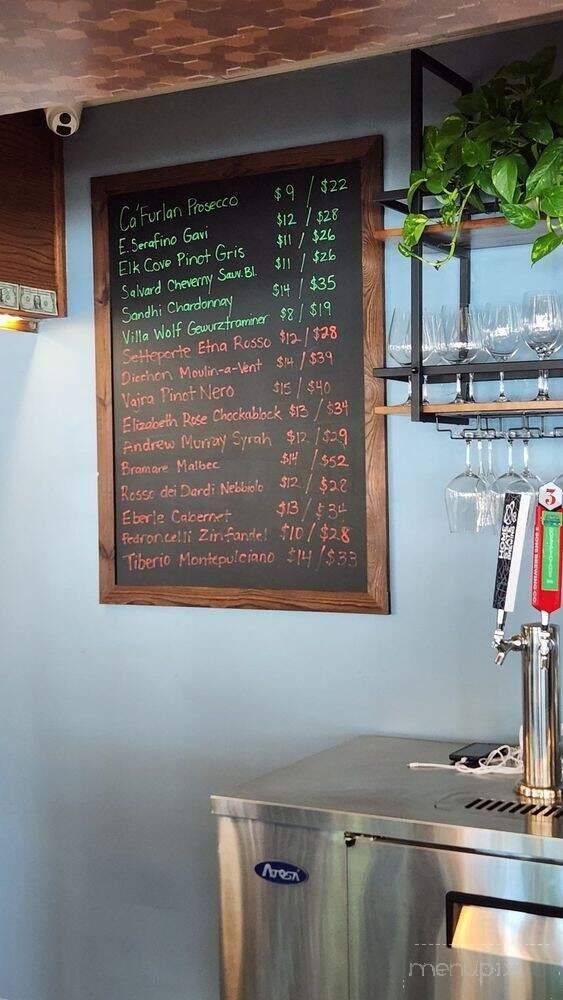 Ca'Furlan Prosecco $9 / $22
E.Serafino Gavi $12 / $28
Elk Cove Pinot Gris $11 / $26
Salvard Cheverny Sauv.Bl. $11 / $26
Sandhi Chardonnay $14 / $35
Villa Wolf Gewurztraminer $8 / $19
Setteporte Etna Rosso $12 / $28
Diochon Moulin-a-Vent $14 / $39
Vajra Pinot Nero $15 / $40
Elizabeth Rose Chockablock $13 / $34
Andrew Murray Syrah $12 / $29
Bramare Malbec $14 / $52
Rosso dei Dardi Nebbiolo $12 / $28
Eberle Cabernet $13 / $34
Pedroncelli Zinfandel $10 / $28
Tiberio Montepulciano $14 / $33
3
3 SONS BREWING CO.
Atosa
menupix